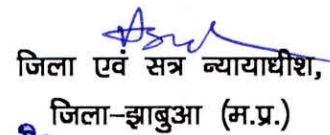 जिला एवं सत्र न्यायाधीश,
जिला-झाबुआ (म.प्र.)